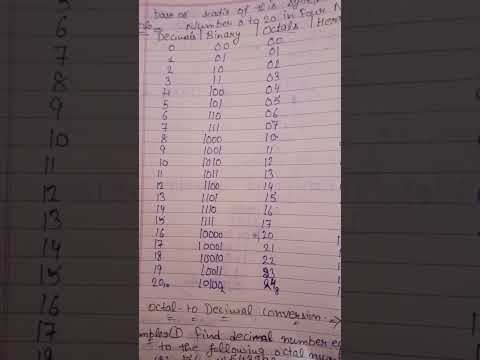 of this
Number 0 to 20 in Four
Decimals Binary Octals
0 00 00
1 01 01
2 10 02
3 11 03
4 100 04
5 101 05
6 110 06
7 111 07
8 1000 10
9 1001 11
10 1010 12
11 1011 13
12 1100 14
13 1101 15
14 1110 16
15 1111 17
16 10000 20
17 10001 21
18 10010 22
19 10011 23
20₁₀ 10100₂ 24₈
octal-to Decimal conversion:→
(1) find decimal number
to the following octal
6
7
8
9
10
11
12
13
14
15
16
17